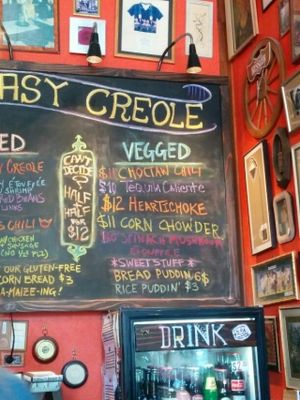 ASY CREOLE
ED
CREOLE
SHRIMP
RED BEANS
LINKS
CHILI
W/CHICKEN
+ SAUSAGE
(NO 1/2 PLZ)
OUR GLUTEN-FREE
CORN BREAD $3
A-MAIZE-ING!
CAN'T
DECIDE
HALF
&
HALF
FOR
$12
VEGGED
CHOCTAW CHILI
$10 Tequila Caliente
$12 HEARTICHOKE
$11 CORN CHOWDER
SPINACH MUSHROOM
*SWEET STUFF*
BREAD PUDDIN' 6$
RICE PUDDIN' $3
DRINK